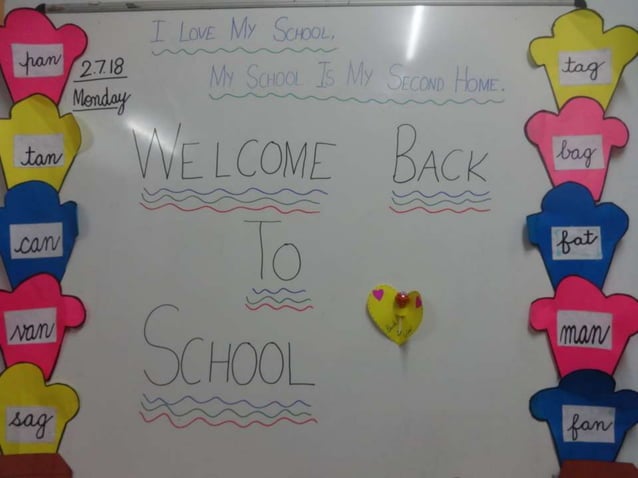 I LOVE MY SCHOOL.
MY SCHOOL IS MY SECOND HOME.
2.7.18
Monday
WELCOME BACK
TO
SCHOOL
pan
tan
can
van
sag
tag
bag
fat
man
fan